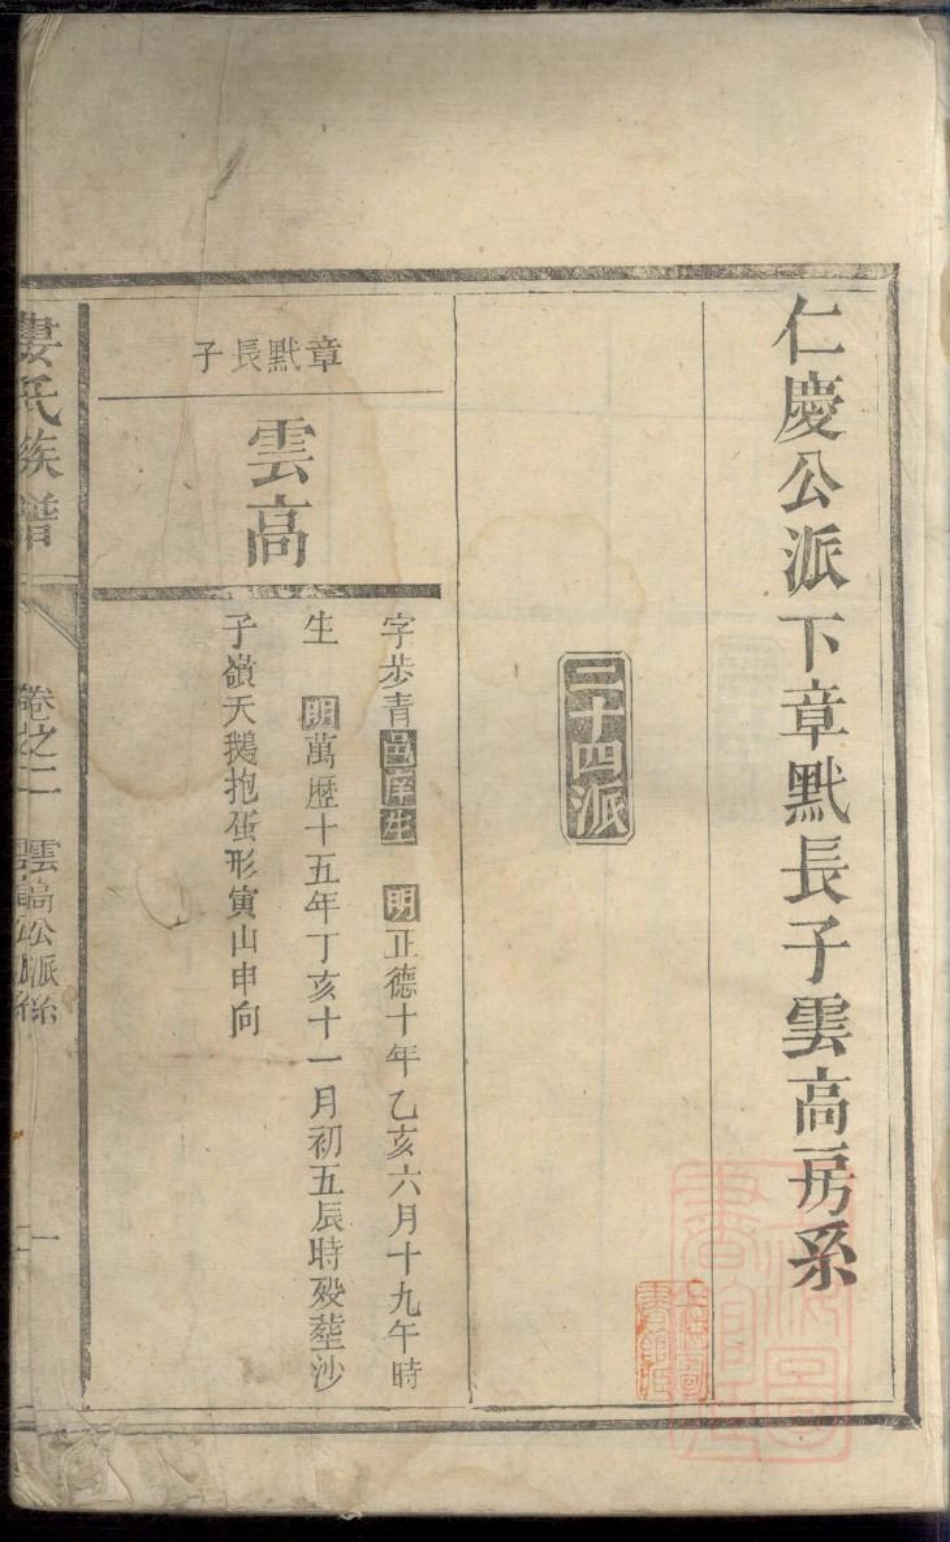 仁慶公派下章默長子雲高房系
三十四派
章默長子
雲高
字步青邑庠生　明正德十年乙亥六月十九午時
生　明萬歷十五年丁亥十一月初五辰時歿塟沙
子嶺天鵝抱蛋形寅山申向
婁氏族譜
卷之二
雲高公派系
一